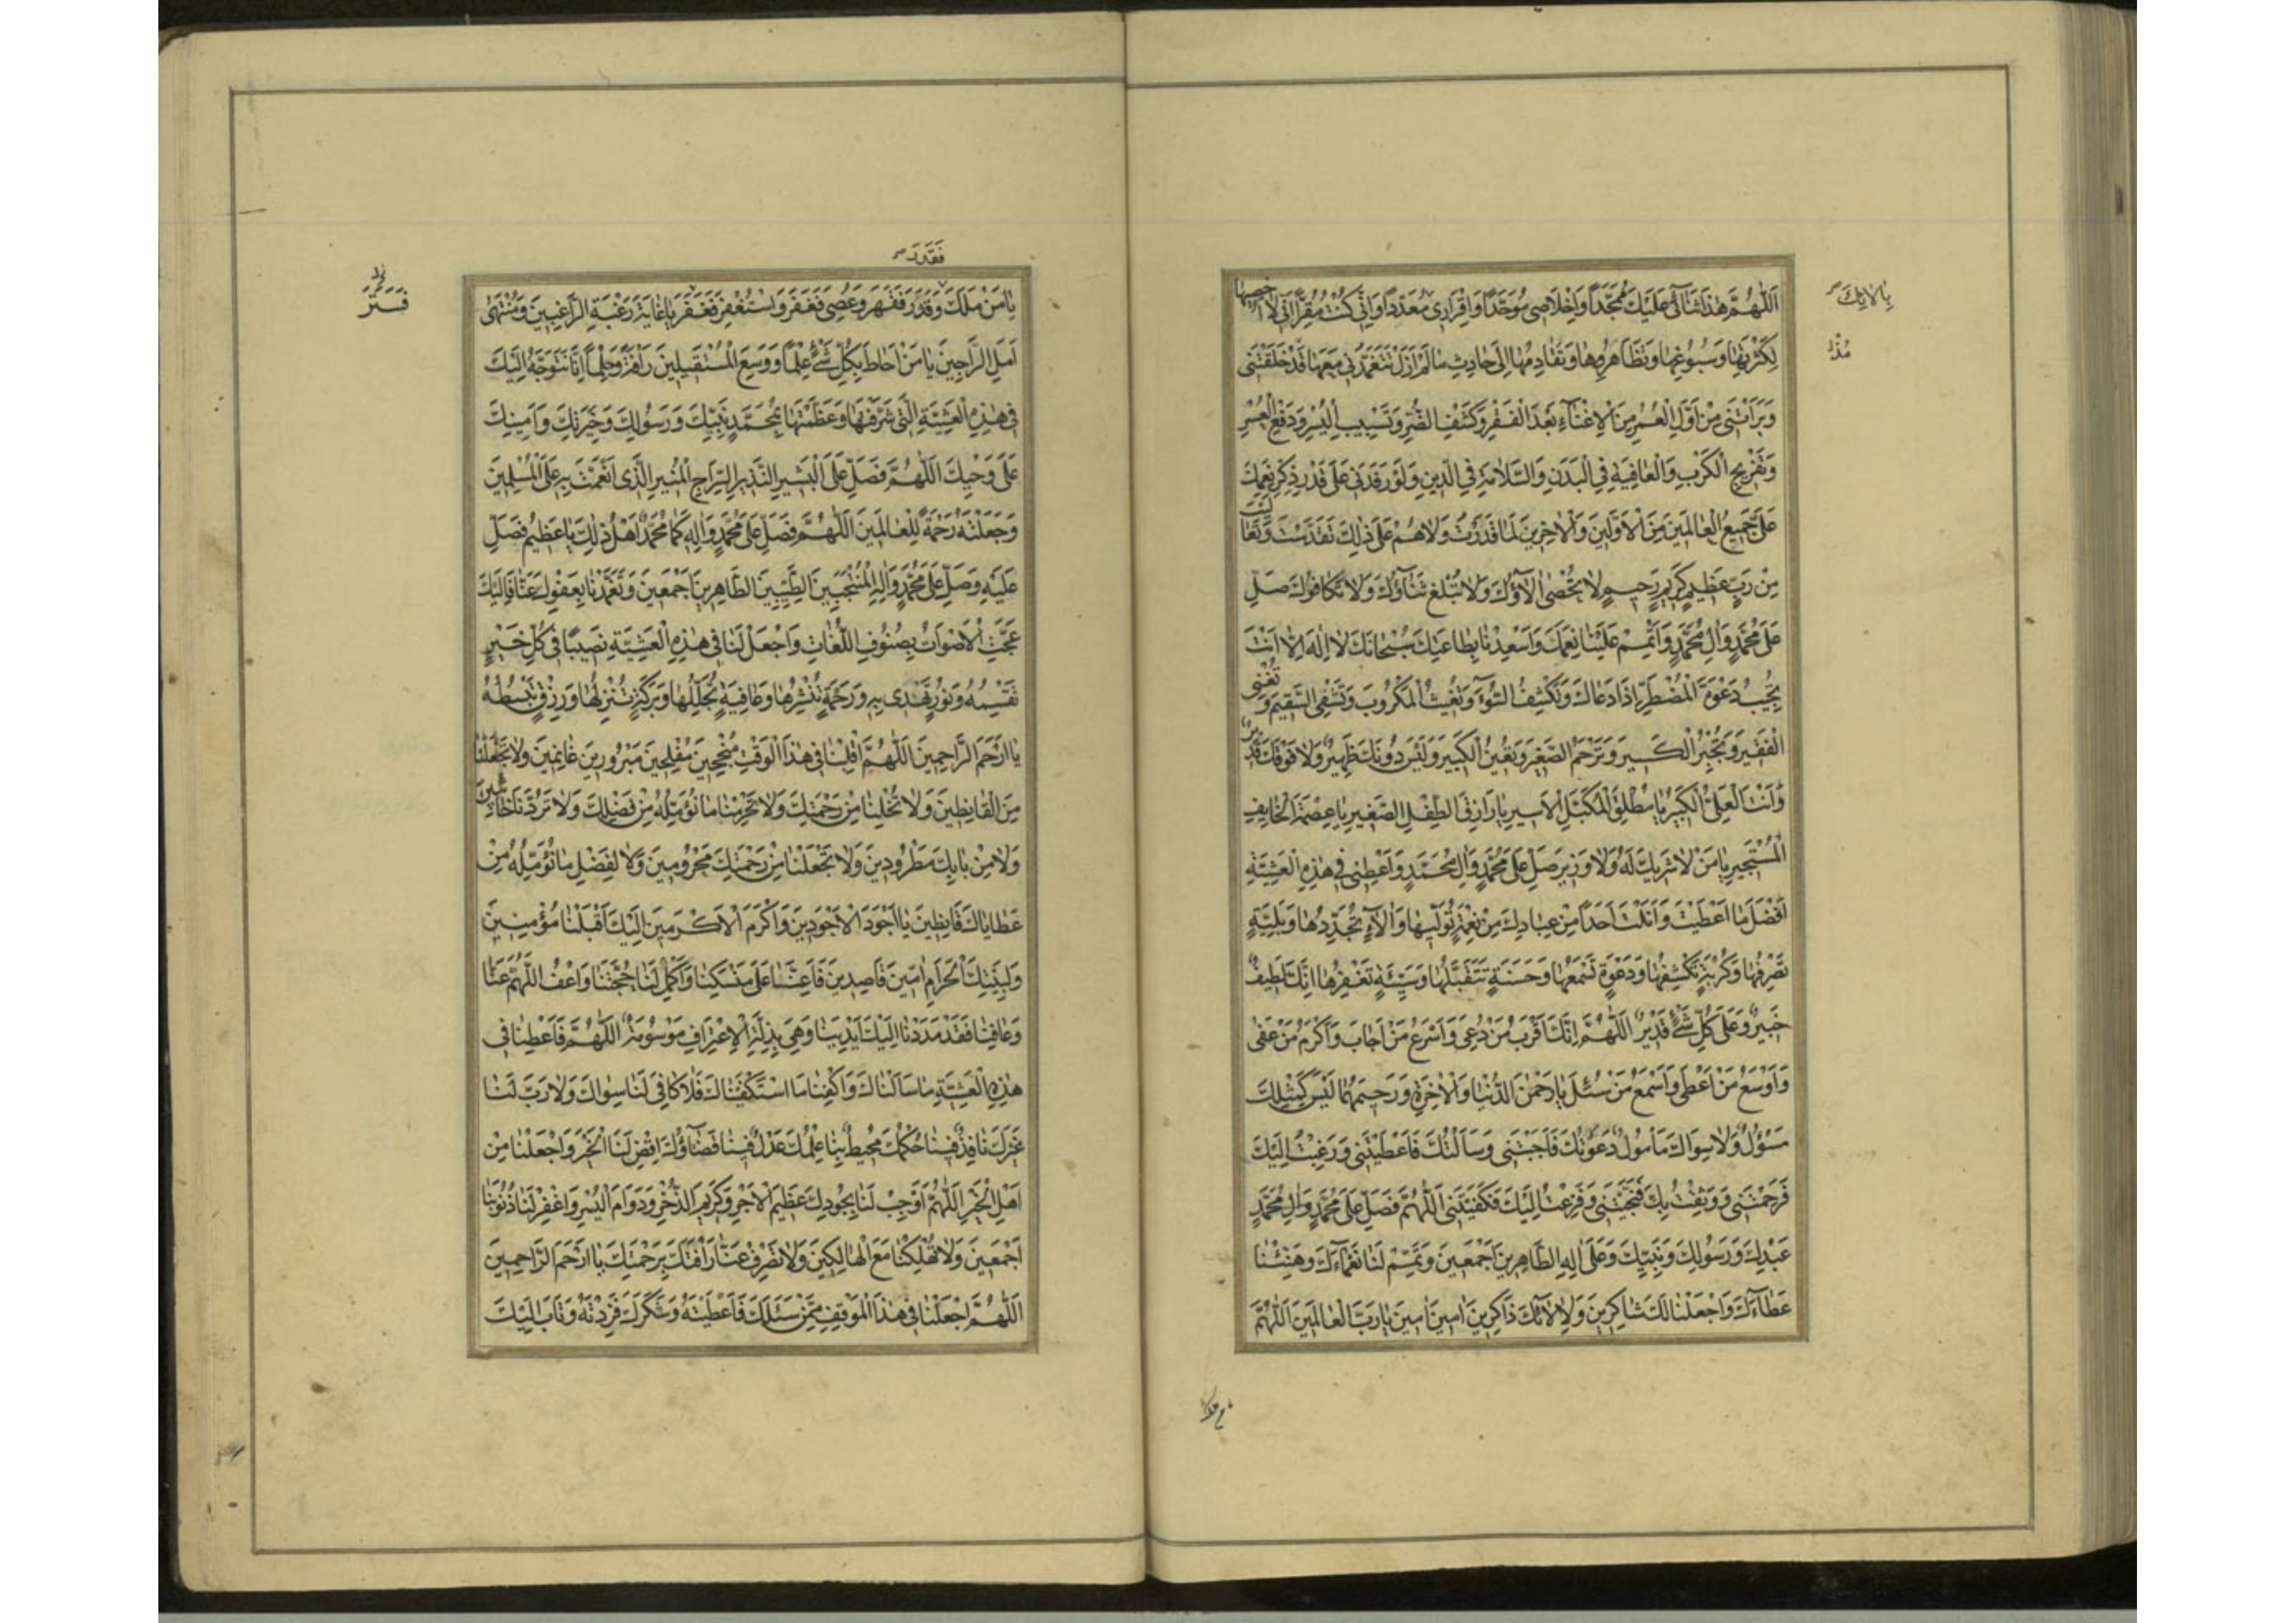 اَللّٰهُمَّ هٰذا ثَنائى عَلَيْكَ مُمَجِّداً وَاِخْلاصى مُوَحِّداً وَاِقْرارى مُعَدِّداً وَاِنّى كُنْتُ مُقِرّاً اَنّى لا اُحْصيها
بِالائِكَ
لِكَثْرَتِها وَسُبُوغِها وَتَظاهُرِها وَتَقادُمِها اِلى حادِثٍ ما لَمْ اَزَلْ تَتَغَمَّدُنى مَعَها قَدْ خَلَقْتَنى
مُنْذُ
وَبَرَاْتَنى مِنْ اَوَّلِ الْعُمُرِ مِنَ الْاِغْناءِ بَعْدَ الْفَقْرِ وَكَشْفِ الضُّرِّ وَتَسْبيبِ الْيُسْرِ وَدَفْعِ الْعُسْرِ
وَتَفْريجِ الْكَرْبِ وَالْعافِيَةِ فِى الْبَدَنِ وَالسَّلامَةِ فِى الدّينِ وَلَوْ رَفَدَنى عَلى قَدْرِ ذِكْرِ نِعَمِكَ
عَلَىَّ جَميعُ الْعالَمينَ مِنَ الْاَوَّلينَ وَالْاخِرينَ لَما قَدَرْتُ وَلاهُمْ عَلى ذٰلِكَ تَقَدَّسْتَ وَتَعالَيْتَ
مِنْ رَبٍّ عَظيمٍ كَريمٍ رَحيمٍ لا تُحْصى الاؤُكَ وَلا تُبْلَغُ ثَناؤُكَ وَلا تُكافى صَلِّ
عَلى مُحَمَّدٍ وَالِ مُحَمَّدٍ وَاَتْمِمْ عَلَيْنا نِعَمَكَ وَاَسْعِدْنا بِطاعَتِكَ سُبْحانَكَ لا اِلٰهَ اِلّا اَنْتَ
تُجيبُ دَعْوَةَ الْمُضْطَرِّ اِذا دَعاكَ وَتَكْشِفُ السُّوءَ وَتُغيثُ الْمَكْرُوبَ وَتَشْفِى السَّقيمَ وَتُغْنِى
الْفَقيرَ وَتَجْبُرُ الْكَسيرَ وَتَرْحَمُ الصَّغيرَ وَتُعينُ الْكَبيرَ وَلَيْسَ دُونَكَ ظَهيرٌ وَلا فَوْقَكَ قَديرٌ
وَاَنْتَ الْعَلِىُّ الْكَبيرُ يا مُطْلِقَ الْمُكَبَّلِ الْاَسيرِ يا رازِقَ الطِّفْلِ الصَّغيرِ يا عِصْمَةَ الْخائِفِ
الْمُسْتَجيرِ يا مَنْ لا شَريكَ لَهُ وَلا وَزيرَ صَلِّ عَلى مُحَمَّدٍ وَالِ مُحَمَّدٍ وَاَعْطِنى فى هٰذِهِ الْعَشِيَّةِ
اَفْضَلَ ما اَعْطَيْتَ وَاَنَلْتَ اَحَداً مِنْ عِبادِكَ مِنْ نِعْمَةٍ تُوليها وَالاءٍ تُجَدِّدُها وَبَلِيَّةٍ
تَصْرِفُها وَكُرْبَةٍ تَكْشِفُها وَدَعْوَةٍ تَسْمَعُها وَحَسَنَةٍ تَتَقَبَّلُها وَسَيِّئَةٍ تَغْفِرُها اِنَّكَ لَطيفٌ
خَبيرٌ وَعَلى كُلِّ شَىْءٍ قَديرٌ اَللّٰهُمَّ اِنَّكَ اَقْرَبُ مَنْ دُعِىَ وَاَسْرَعُ مَنْ اَجابَ وَاَكْرَمُ مَنْ عَفى
وَاَوْسَعُ مَنْ اَعْطى وَاَسْمَعُ مَنْ سُئِلَ يا رَحْمٰنَ الدُّنْيا وَالْاخِرَةِ وَرَحيمَهُما لَيْسَ كَمِثْلِكَ
مَسْؤُلٌ وَلا سِواكَ مَاْمُولٌ دَعَوْتُكَ فَاَجَبْتَنى وَسَاَلْتُكَ فَاَعْطَيْتَنى وَرَغِبْتُ اِلَيْكَ
فَرَحِمْتَنى وَوَثِقْتُ بِكَ فَنَجَّيْتَنى وَفَزِعْتُ اِلَيْكَ فَكَفَيْتَنى اَللّٰهُمَّ فَصَلِّ عَلى مُحَمَّدٍ وَالِ مُحَمَّدٍ
عَبْدِكَ وَرَسُولِكَ وَنَبِيِّكَ وَعَلى الِهِ الطّاهِرينَ اَجْمَعينَ وَتَمِّمْ لَنا نَعْماءَكَ وَهَنِّئْنا
عَطاءَكَ وَاجْعَلْنا لَكَ شاكِرينَ وَلِالائِكَ ذاكِرينَ امينَ امينَ يا رَبَّ الْعالَمينَ اَللّٰهُمَّ
فَقَدَرَ
يا مَنْ مَلَكَ وَقَدَرَ فَقَهَرَ وَعُصِىَ فَغَفَرَ وَاسْتُغْفِرَ فَغَفَرَ يا غايَةَ رَغْبَةِ الرّاغِبينَ وَمُنْتَهى
فَسَتَرَ
اَمَلِ الرّاجينَ يا مَنْ اَحاطَ بِكُلِّ شَىْءٍ عِلْماً وَوَسِعَ الْمُسْتَقيلينَ رَاْفَةً وَحِلْماً اِنّا نَتَوَجَّهُ اِلَيْكَ
فى هٰذِهِ الْعَشِيَّةِ الَّتى شَرَّفْتَها وَعَظَّمْتَها بِمُحَمَّدٍ نَبِيِّكَ وَرَسُولِكَ وَخِيَرَتِكَ وَاَمينِكَ
عَلى وَحْيِكَ اَللّٰهُمَّ فَصَلِّ عَلَى الْبَشيرِ النَّذيرِ السِّراجِ الْمُنيرِ الَّذى اَنْعَمْتَ بِهِ عَلَى الْمُسْلِمينَ
وَجَعَلْتَهُ رَحْمَةً لِلْعالَمينَ اَللّٰهُمَّ فَصَلِّ عَلى مُحَمَّدٍ وَالِهِ كَما مُحَمَّدٌ اَهْلُ ذٰلِكَ يا عَظيمُ فَصَلِّ
عَلَيْهِ وَصَلِّ عَلى مُحَمَّدٍ وَالِهِ الْمُنْتَجَبينَ الطَّيِّبينَ الطّاهِرينَ اَجْمَعينَ وَتَغَمَّدْنا بِعَفْوِكَ عَنّا فَاِلَيْكَ
عَجَّتِ الْاَصْواتُ بِصُنُوفِ اللُّغاتِ وَاجْعَلْ لَنا فى هٰذِهِ الْعَشِيَّةِ نَصيباً فى كُلِّ خَيْرٍ
تَقْسِمُهُ وَنُورٍ تَهْدى بِهِ وَرَحْمَةٍ تَنْشُرُها وَعافِيَةٍ تُجَلِّلُها وَبَرَكَةٍ تُنْزِلُها وَرِزْقٍ تَبْسُطُهُ
يا اَرْحَمَ الرّاحِمينَ اَللّٰهُمَّ اقْلِبْنا فى هٰذَا الْوَقْتِ مُنْجِحينَ مُفْلِحينَ مَبْرُورينَ غانِمينَ وَلا تَجْعَلْنا
مِنَ الْقانِطينَ وَلا تُخْلِنا مِنْ رَحْمَتِكَ وَلا تَحْرِمْنا ما نُؤَمِّلُهُ مِنْ فَضْلِكَ وَلا تَرُدَّنا خائِبينَ
وَلا مِنْ بابِكَ مَطْرُودينَ وَلا تَجْعَلْنا مِنْ رَحْمَتِكَ مَحْرُومينَ وَلا لِفَضْلِ ما نُؤَمِّلُهُ مِنْ
عَطاياكَ قانِطينَ يا اَجْوَدَ الْاَجْوَدينَ وَاَكْرَمَ الْاَكْرَمينَ اِلَيْكَ اَقْبَلْنا مُؤْمِنينَ
وَلِبَيْتِكَ الْحَرامِ امّينَ قاصِدينَ فَاَعِنّا عَلى مَنْسَكِنا وَاَكْمِلْ لَنا حَجَّتَنا وَاعْفُ اللّٰهُمَّ عَنّا
وَعافِنا فَقَدْ مَدَدْنا اِلَيْكَ اَيْدِيَنا وَهِىَ بِذِلَّةِ الْاِعْتِرافِ مَوْسُومَةٌ اَللّٰهُمَّ فَاَعْطِنا فى
هٰذِهِ الْعَشِيَّةِ ما سَاَلْناكَ وَاكْفِنا مَا اسْتَكْفَيْناكَ فَلا كافِىَ لَنا سِواكَ وَلا رَبَّ لَنا
غَيْرُكَ نافِذٌ فينا حُكْمُكَ مُحيطٌ بِنا عِلْمُكَ عَدْلٌ فينا قَضاؤُكَ اِقْضِ لَنَا الْخَيْرَ وَاجْعَلْنا مِنْ
اَهْلِ الْخَيْرِ اَللّٰهُمَّ اَوْجِبْ لَنا بِجُودِكَ عَظيمَ الْاَجْرِ وَكَريمَ الذُّخْرِ وَدَوامَ الْيُسْرِ وَاغْفِرْ لَنا ذُنُوبَنا
اَجْمَعينَ وَلا تُهْلِكْنا مَعَ الْهالِكينَ وَلا تَصْرِفْ عَنّا رَاْفَتَكَ بِرَحْمَتِكَ يا اَرْحَمَ الرّاحِمينَ
اَللّٰهُمَّ اجْعَلْنا فى هٰذَا الْمَوْقِفِ مِمَّنْ سَئَلَكَ فَاَعْطَيْتَهُ وَشَكَرَكَ فَزِدْتَهُ وَتابَ اِلَيْكَ